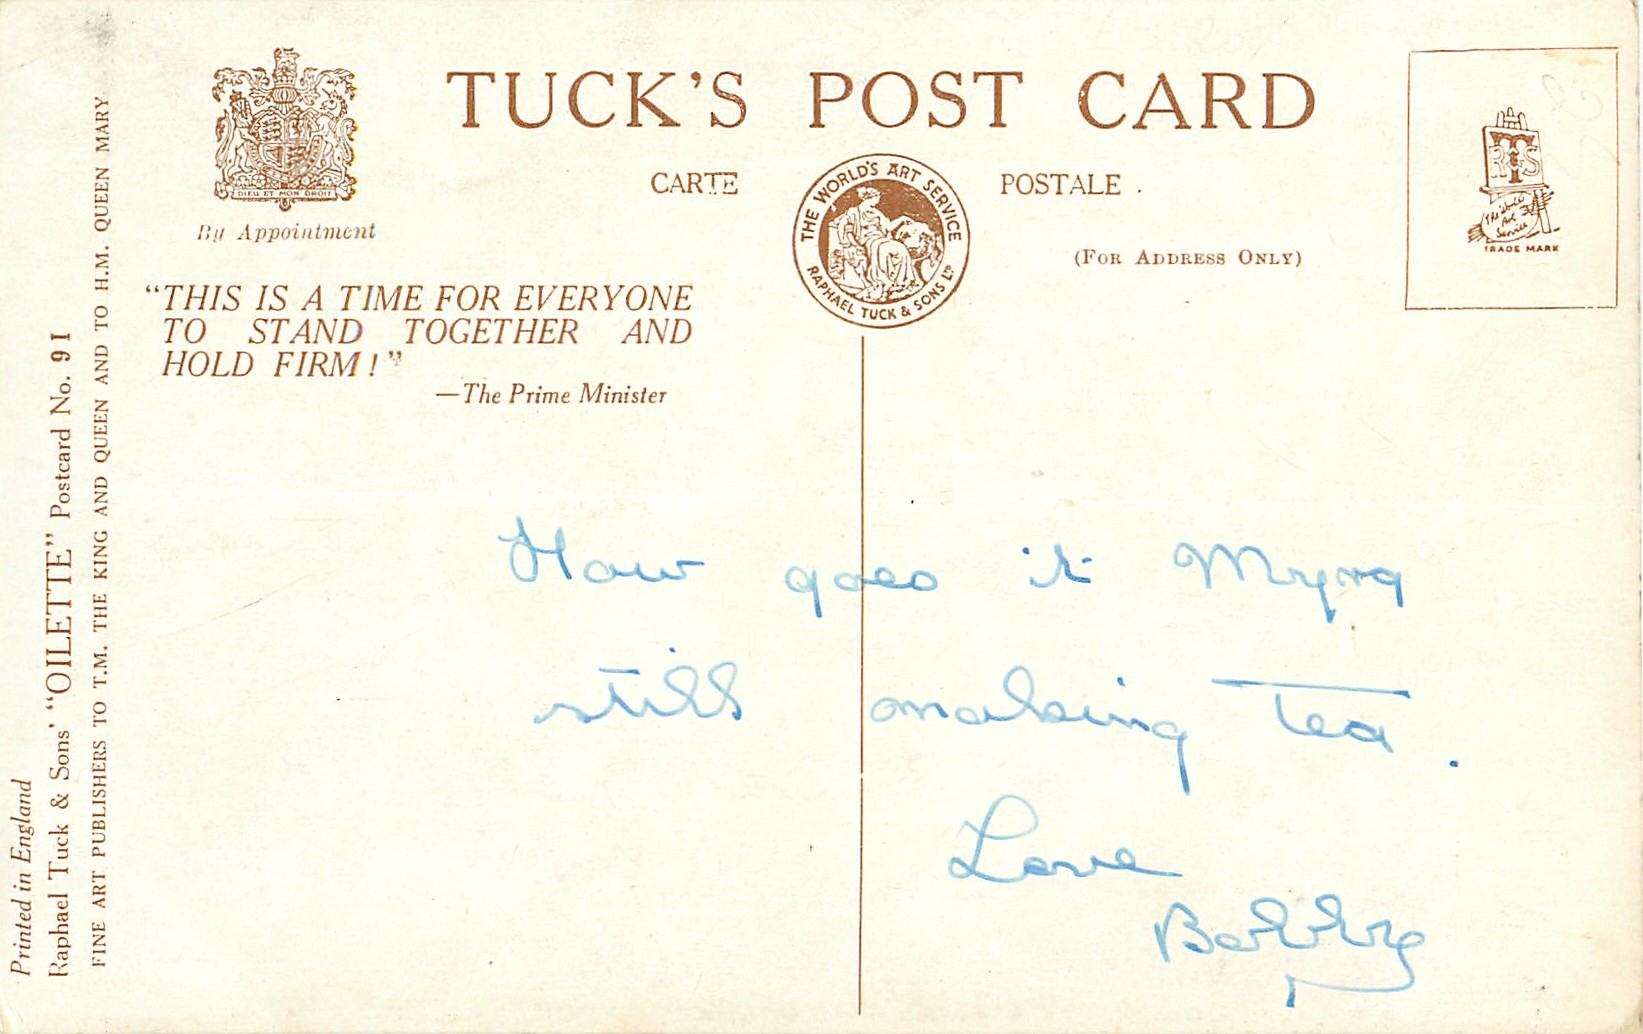 TUCK'S POST CARD
CARTE POSTALE
(FOR ADDRESS ONLY)
DIEU ET MON DROIT
By Appointment
THE WORLD'S ART SERVICE
RAPHAEL TUCK & SONS LTD
RTS
The World's
Art
Service
TRADE MARK
"THIS IS A TIME FOR EVERYONE
TO STAND TOGETHER AND
HOLD FIRM!"
—The Prime Minister
How goes it Myra
still making tea.
Love
Bobby
Printed in England
Raphael Tuck & Sons' "OILETTE" Postcard No. 91
FINE ART PUBLISHERS TO T.M. THE KING AND QUEEN AND TO H.M. QUEEN MARY